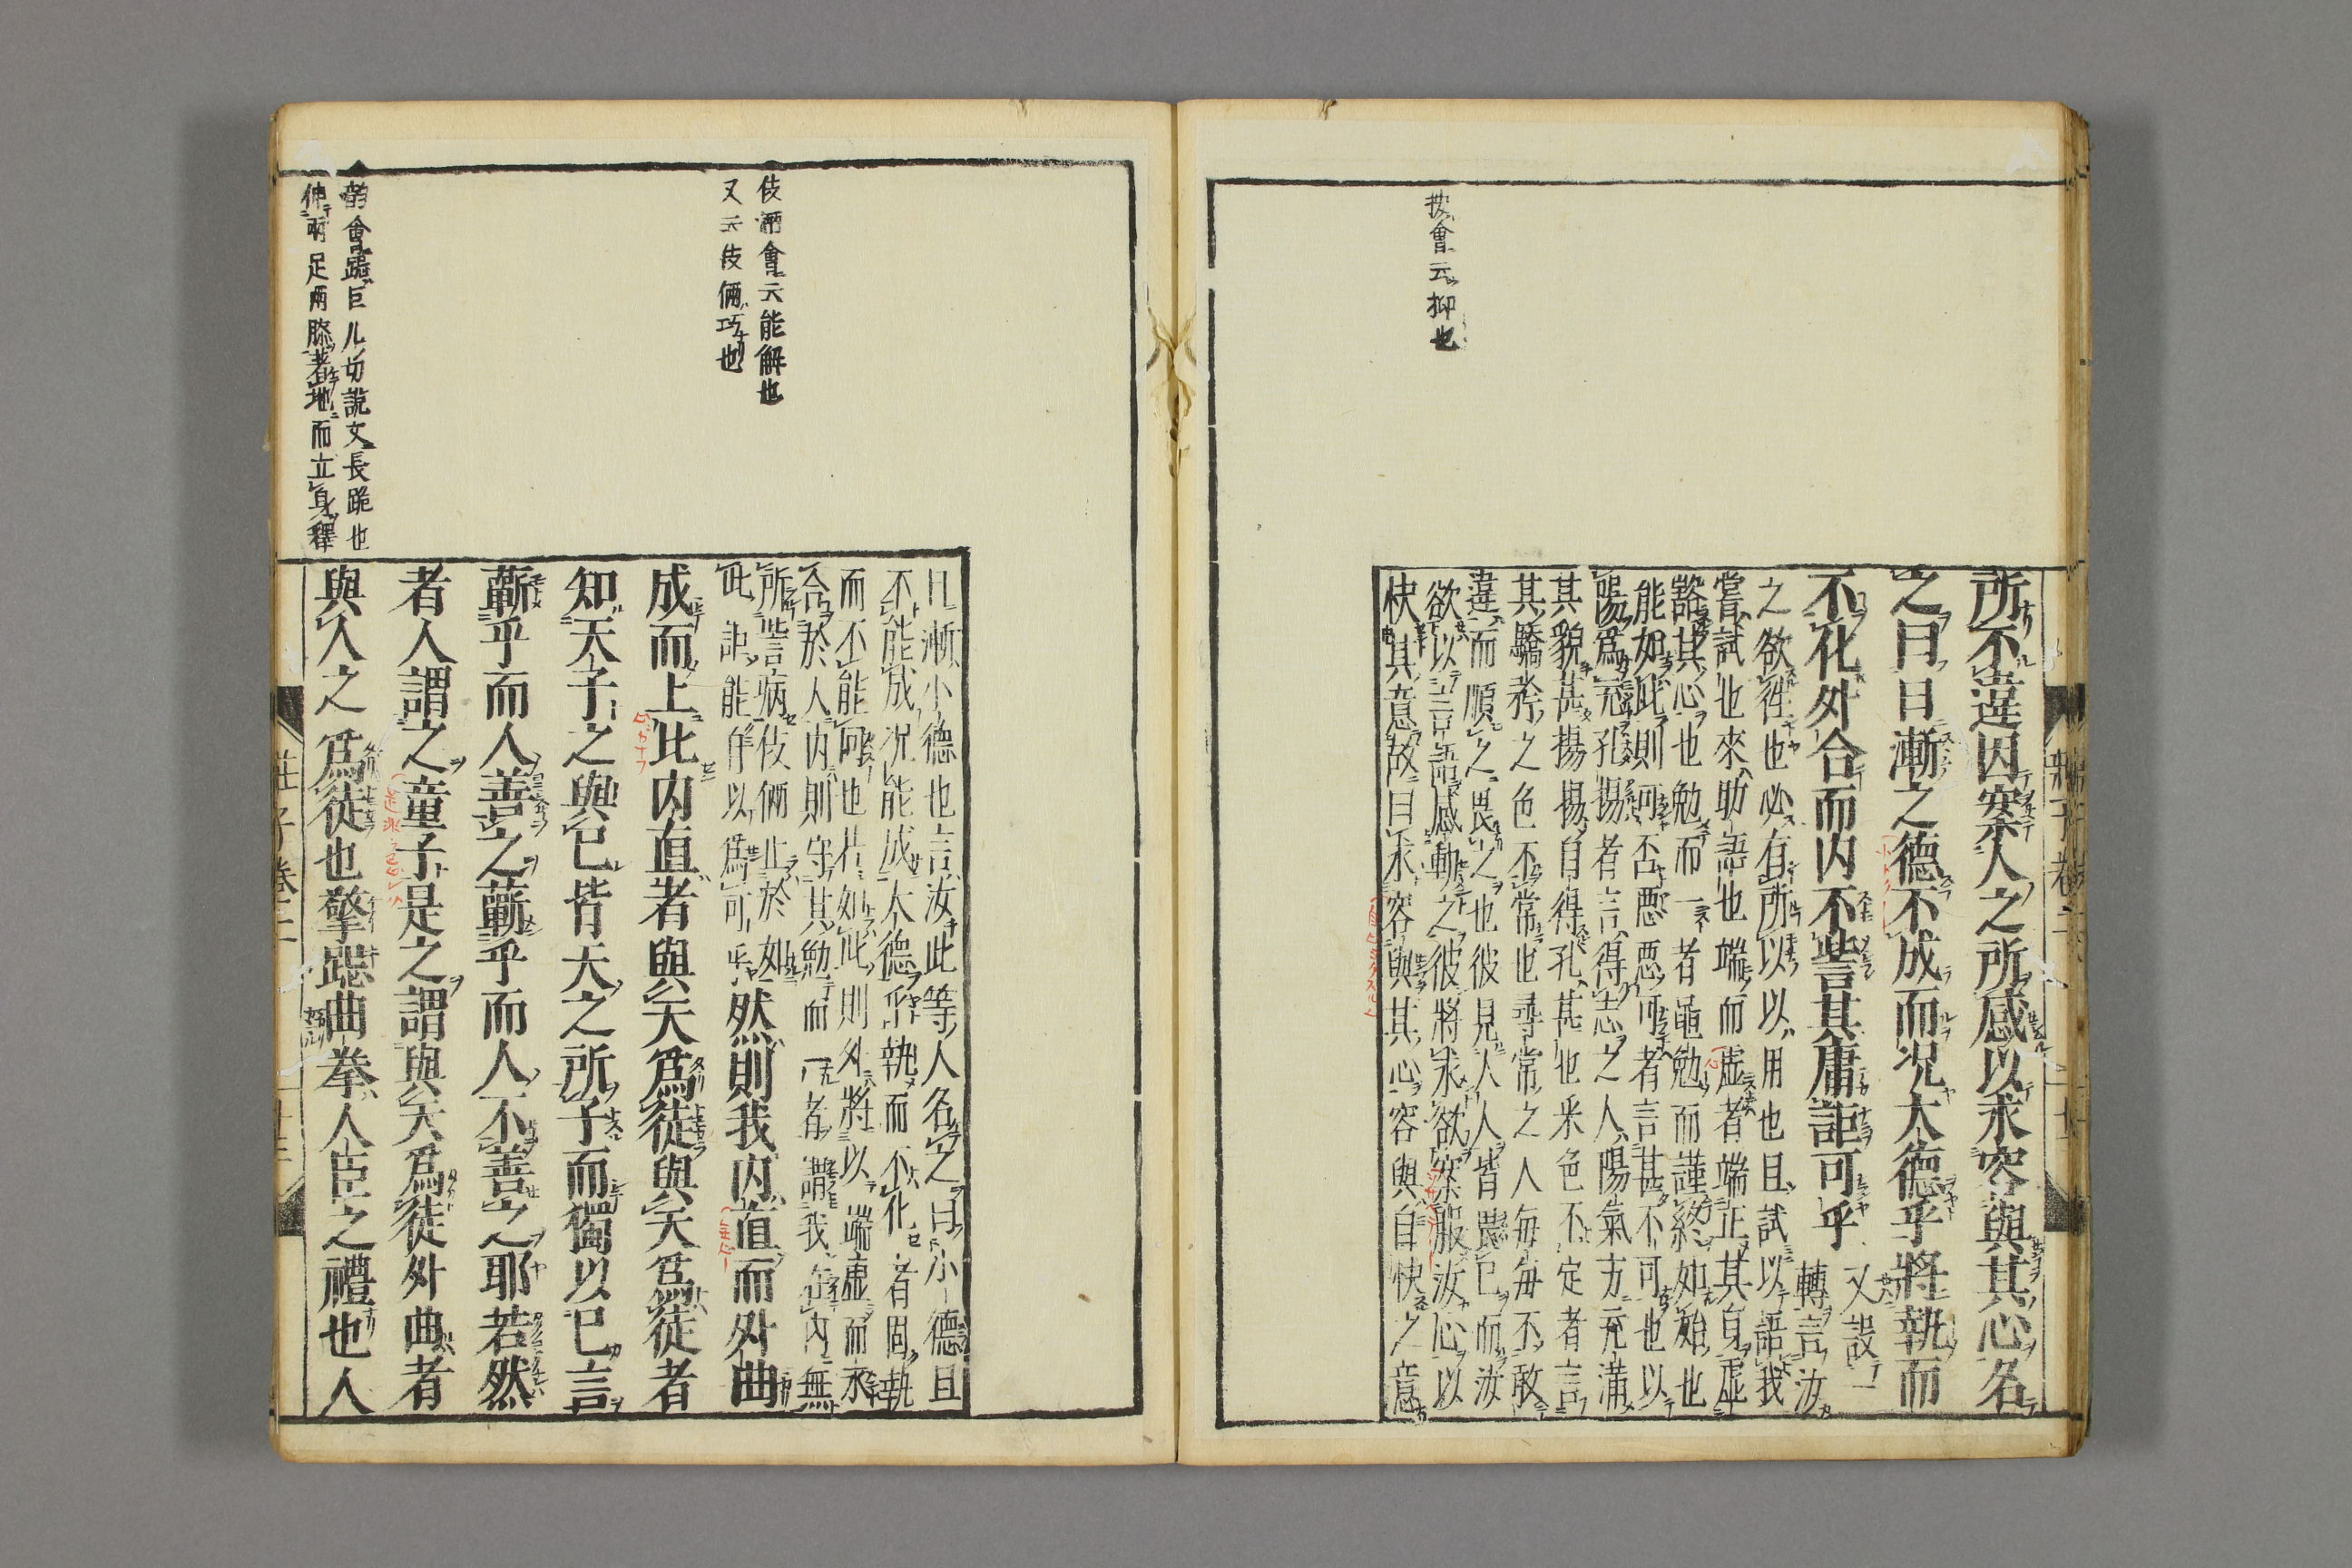 按會云抑也
所不違因案人之所感以求容與其心名
之曰日漸之德不成而况大德乎將執而
不化外合而內不訾其庸詎可乎 又設一
轉言汝
之欲徃也必有所以以用也且試以語我
嘗試也來助語也端而虛者端正其身虛
豁其心也勉而一者黽勉而謹終如始也
能如此則可否惡惡可者言甚不可也以
陽爲充孔揚者言得志之人陽氣方充滿
其貌甚揚揚自得孔甚也采色不定者言
其驕矜之色不常也尋常之人每每不敢
違而順之畏之也彼見人人皆畏已而汝
欲以言語感動之彼將求欲案服汝心以
快其意故曰求容與其心容與自快之意
伎倆會云能解也
又云伎倆巧也
韵會跽巨几切說文長跪也
伸兩足兩膝著地而立身釋
日漸小德也言汝此等人名之曰小德且
不能成况能成大德乎執而不化者固執
而不能回也若如此則外將以端虛而求
合於人內則守其勉而一者謂我在內無
所訾病伎倆止於如
此詎能作以爲可乎 然則我內直而外曲
成而上比內直者與天爲徒與天爲徒者
知天子之與已皆天之所子而獨以已言
蘄乎而人善之蘄乎而人不善之耶若然
者人謂之童子是之謂與天爲徒外曲者
與人之爲徒也擎跽曲拳人臣之禮也人
莊子卷二 十三